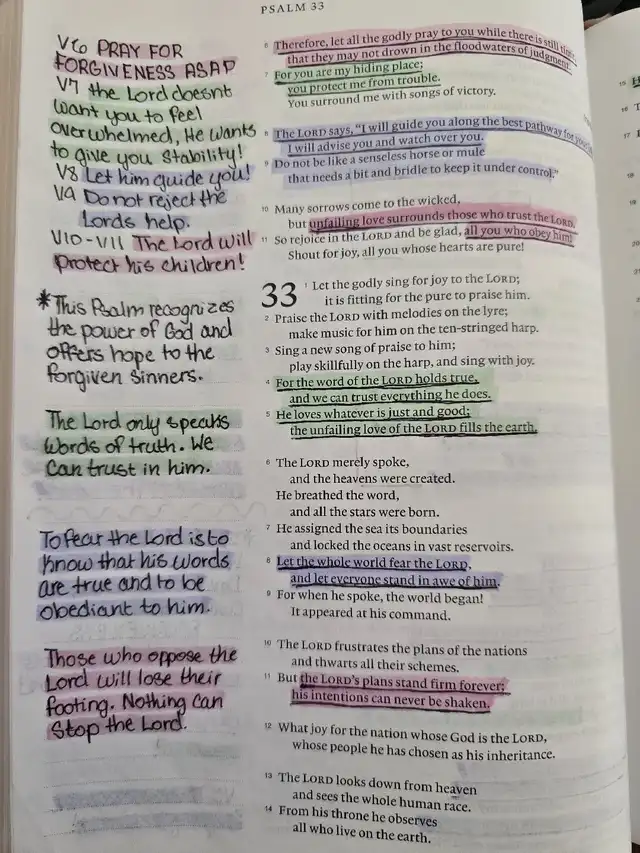 PSALM 33
V6 PRAY FOR
FORGIVENESS ASAP
V7 the Lord doesnt
want you to feel
overwhelmed, He wants
to give you stability!
V8 Let him guide you!
V9 Do not reject the
Lords help.
V10-V11 The Lord will
protect his children!
*This Psalm recognizes
the power of God and
offers hope to the
forgiven sinners.
The Lord only speaks
words of truth. We
can trust in him.
To fear the Lord is to
know that his words
are true and to be
obediant to him.
Those who oppose the
Lord will lose their
footing. Nothing can
stop the Lord.
6 Therefore, let all the godly pray to you while there is still time,
that they may not drown in the floodwaters of judgment.
7 For you are my hiding place;
you protect me from trouble.
You surround me with songs of victory.
8 The LORD says, "I will guide you along the best pathway for your
I will advise you and watch over you.
9 Do not be like a senseless horse or mule
that needs a bit and bridle to keep it under control."
10 Many sorrows come to the wicked,
but unfailing love surrounds those who trust the LORD.
11 So rejoice in the LORD and be glad, all you who obey him!
Shout for joy, all you whose hearts are pure!
33 1 Let the godly sing for joy to the LORD;
it is fitting for the pure to praise him.
2 Praise the LORD with melodies on the lyre;
make music for him on the ten-stringed harp.
3 Sing a new song of praise to him;
play skillfully on the harp, and sing with joy.
4 For the word of the LORD holds true,
and we can trust everything he does.
5 He loves whatever is just and good;
the unfailing love of the LORD fills the earth.
6 The LORD merely spoke,
and the heavens were created.
He breathed the word,
and all the stars were born.
7 He assigned the sea its boundaries
and locked the oceans in vast reservoirs.
8 Let the whole world fear the LORD,
and let everyone stand in awe of him.
9 For when he spoke, the world began!
It appeared at his command.
10 The LORD frustrates the plans of the nations
and thwarts all their schemes.
11 But the LORD's plans stand firm forever;
his intentions can never be shaken.
12 What joy for the nation whose God is the LORD,
whose people he has chosen as his inheritance.
13 The LORD looks down from heaven
and sees the whole human race.
14 From his throne he observes
all who live on the earth.
15
16
17
18
19
20
21